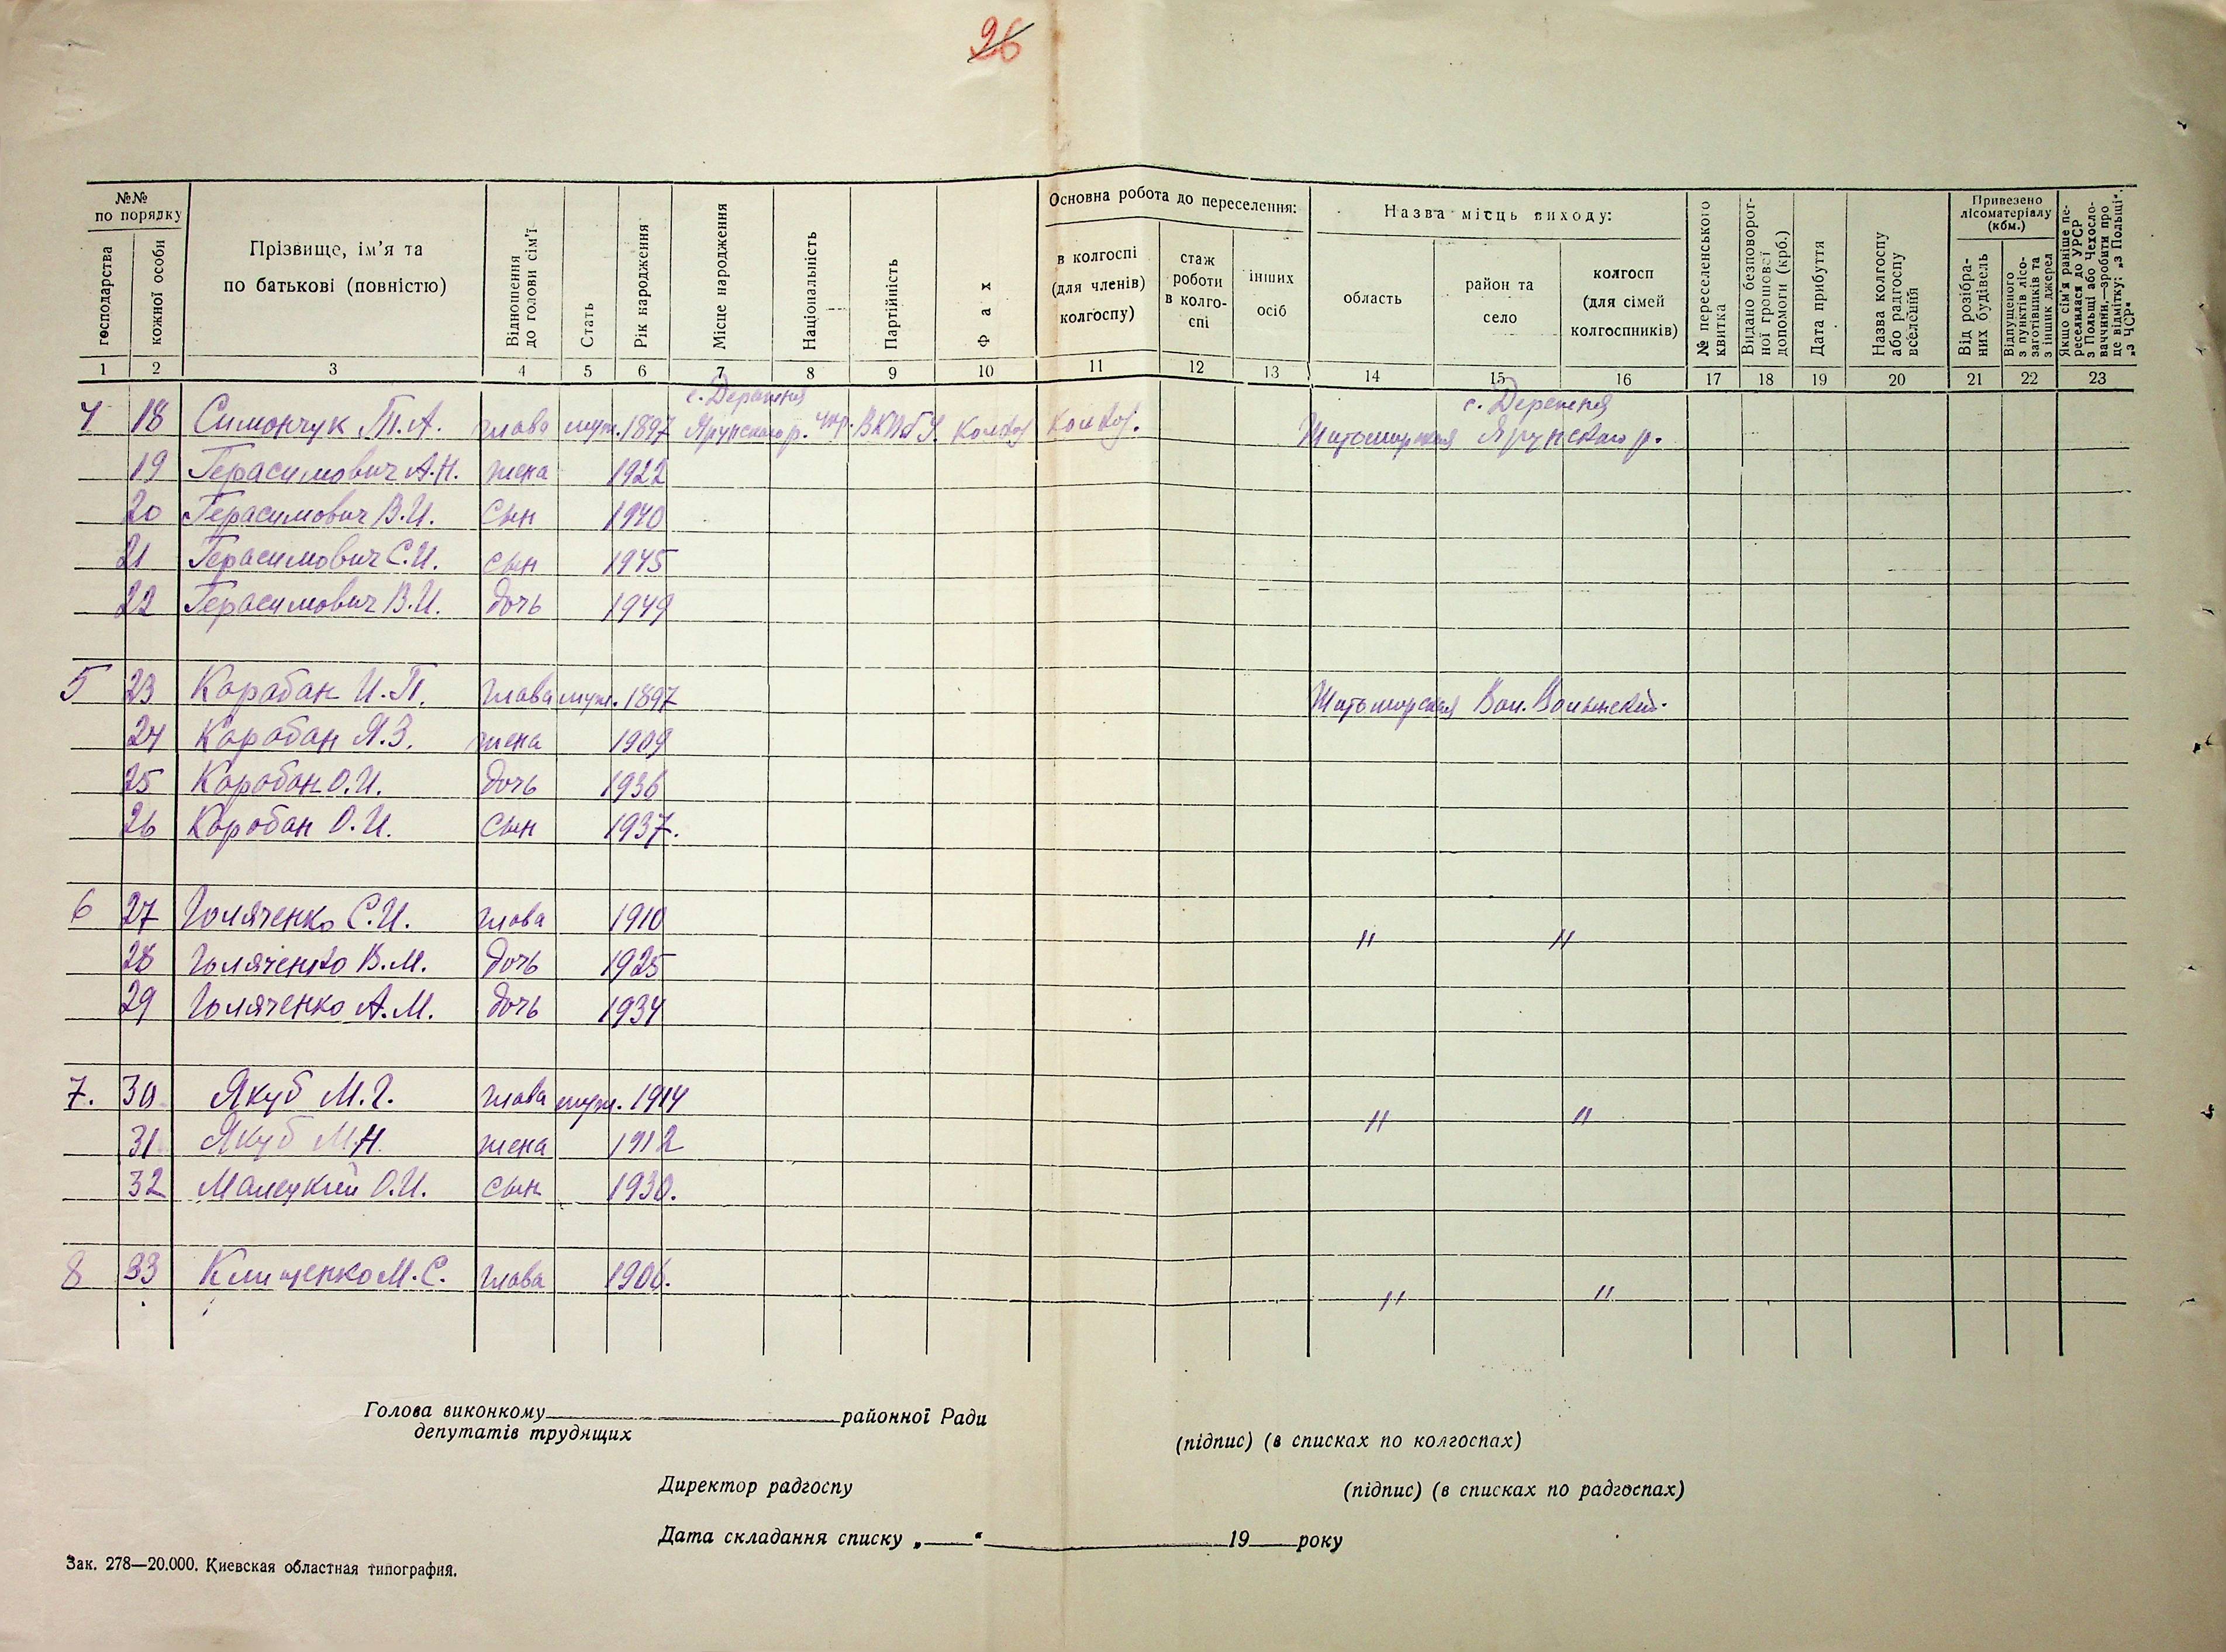 26
№№ по порядку
господарства
кожної особи
Прізвище, ім'я та по батькові (повністю)
Відношення до голови сім'ї
Стать
Рік народження
Місце народження
Національність
Партійність
Фах
Основна робота до переселення:
в колгоспі (для членів) колгоспу)
стаж роботи в колгоспі
інших осіб
Назва місць виходу:
область
район та село
колгосп (для сімей колгоспників)
№ переселенського квитка
Видано безповоротної грошової допомоги (крб.)
Дата прибуття
Назва колгоспу або радгоспу вселення
Привезено лісоматеріалу (кбм.)
Від розібраних будівель
Відпущеного з пунктів лісозаготівників та з інших джерел
Якщо сім'я раніше переселилася до УРСР з Польщі або Чехословаччини,—зробити про це відмітку: „з Польщі“, „з ЧСР“
1 2 3 4 5 6 7 8 9 10 11 12 13 14 15 16 17 18 19 20 21 22 23
с. Деревня с. Деревня
4 18 Симончук П.А. глава муж. 1897 Ярунского р. укр. ВКПбУ. Колхоз Колхоз. Житомирская Ярунского р.
19 Герасимович А.Н. жена 1922
20 Герасимович В.И. сын 1940
21 Герасимович С.И. сын 1945
22 Герасимович В.И. дочь 1949
5 23 Карабан И.П. глава муж. 1897 Житомирская Вол. Волынский.
24 Карабан Я.З. жена 1909
25 Карабан О.И. дочь 1936
26 Карабан О.И. сын 1937.
6 27 Голяченко С.И. глава 1910 " "
28 Голяченко В.М. дочь 1925
29 Голяченко А.М. дочь 1934
7. 30 Якуб М.Г. глава муж. 1914 " "
31 Якуб М.Н. жена 1912
32 Малецкий О.И. сын 1930.
8 33 Клищенко М.С. глава 1906. " "
Голова виконкому районної Ради
депутатів трудящих
(підпис) (в списках по колгоспах)
Директор радгоспу
(підпис) (в списках по радгоспах)
Дата складання списку „ “ 19 року
Зак. 278—20.000. Киевская областная типография.